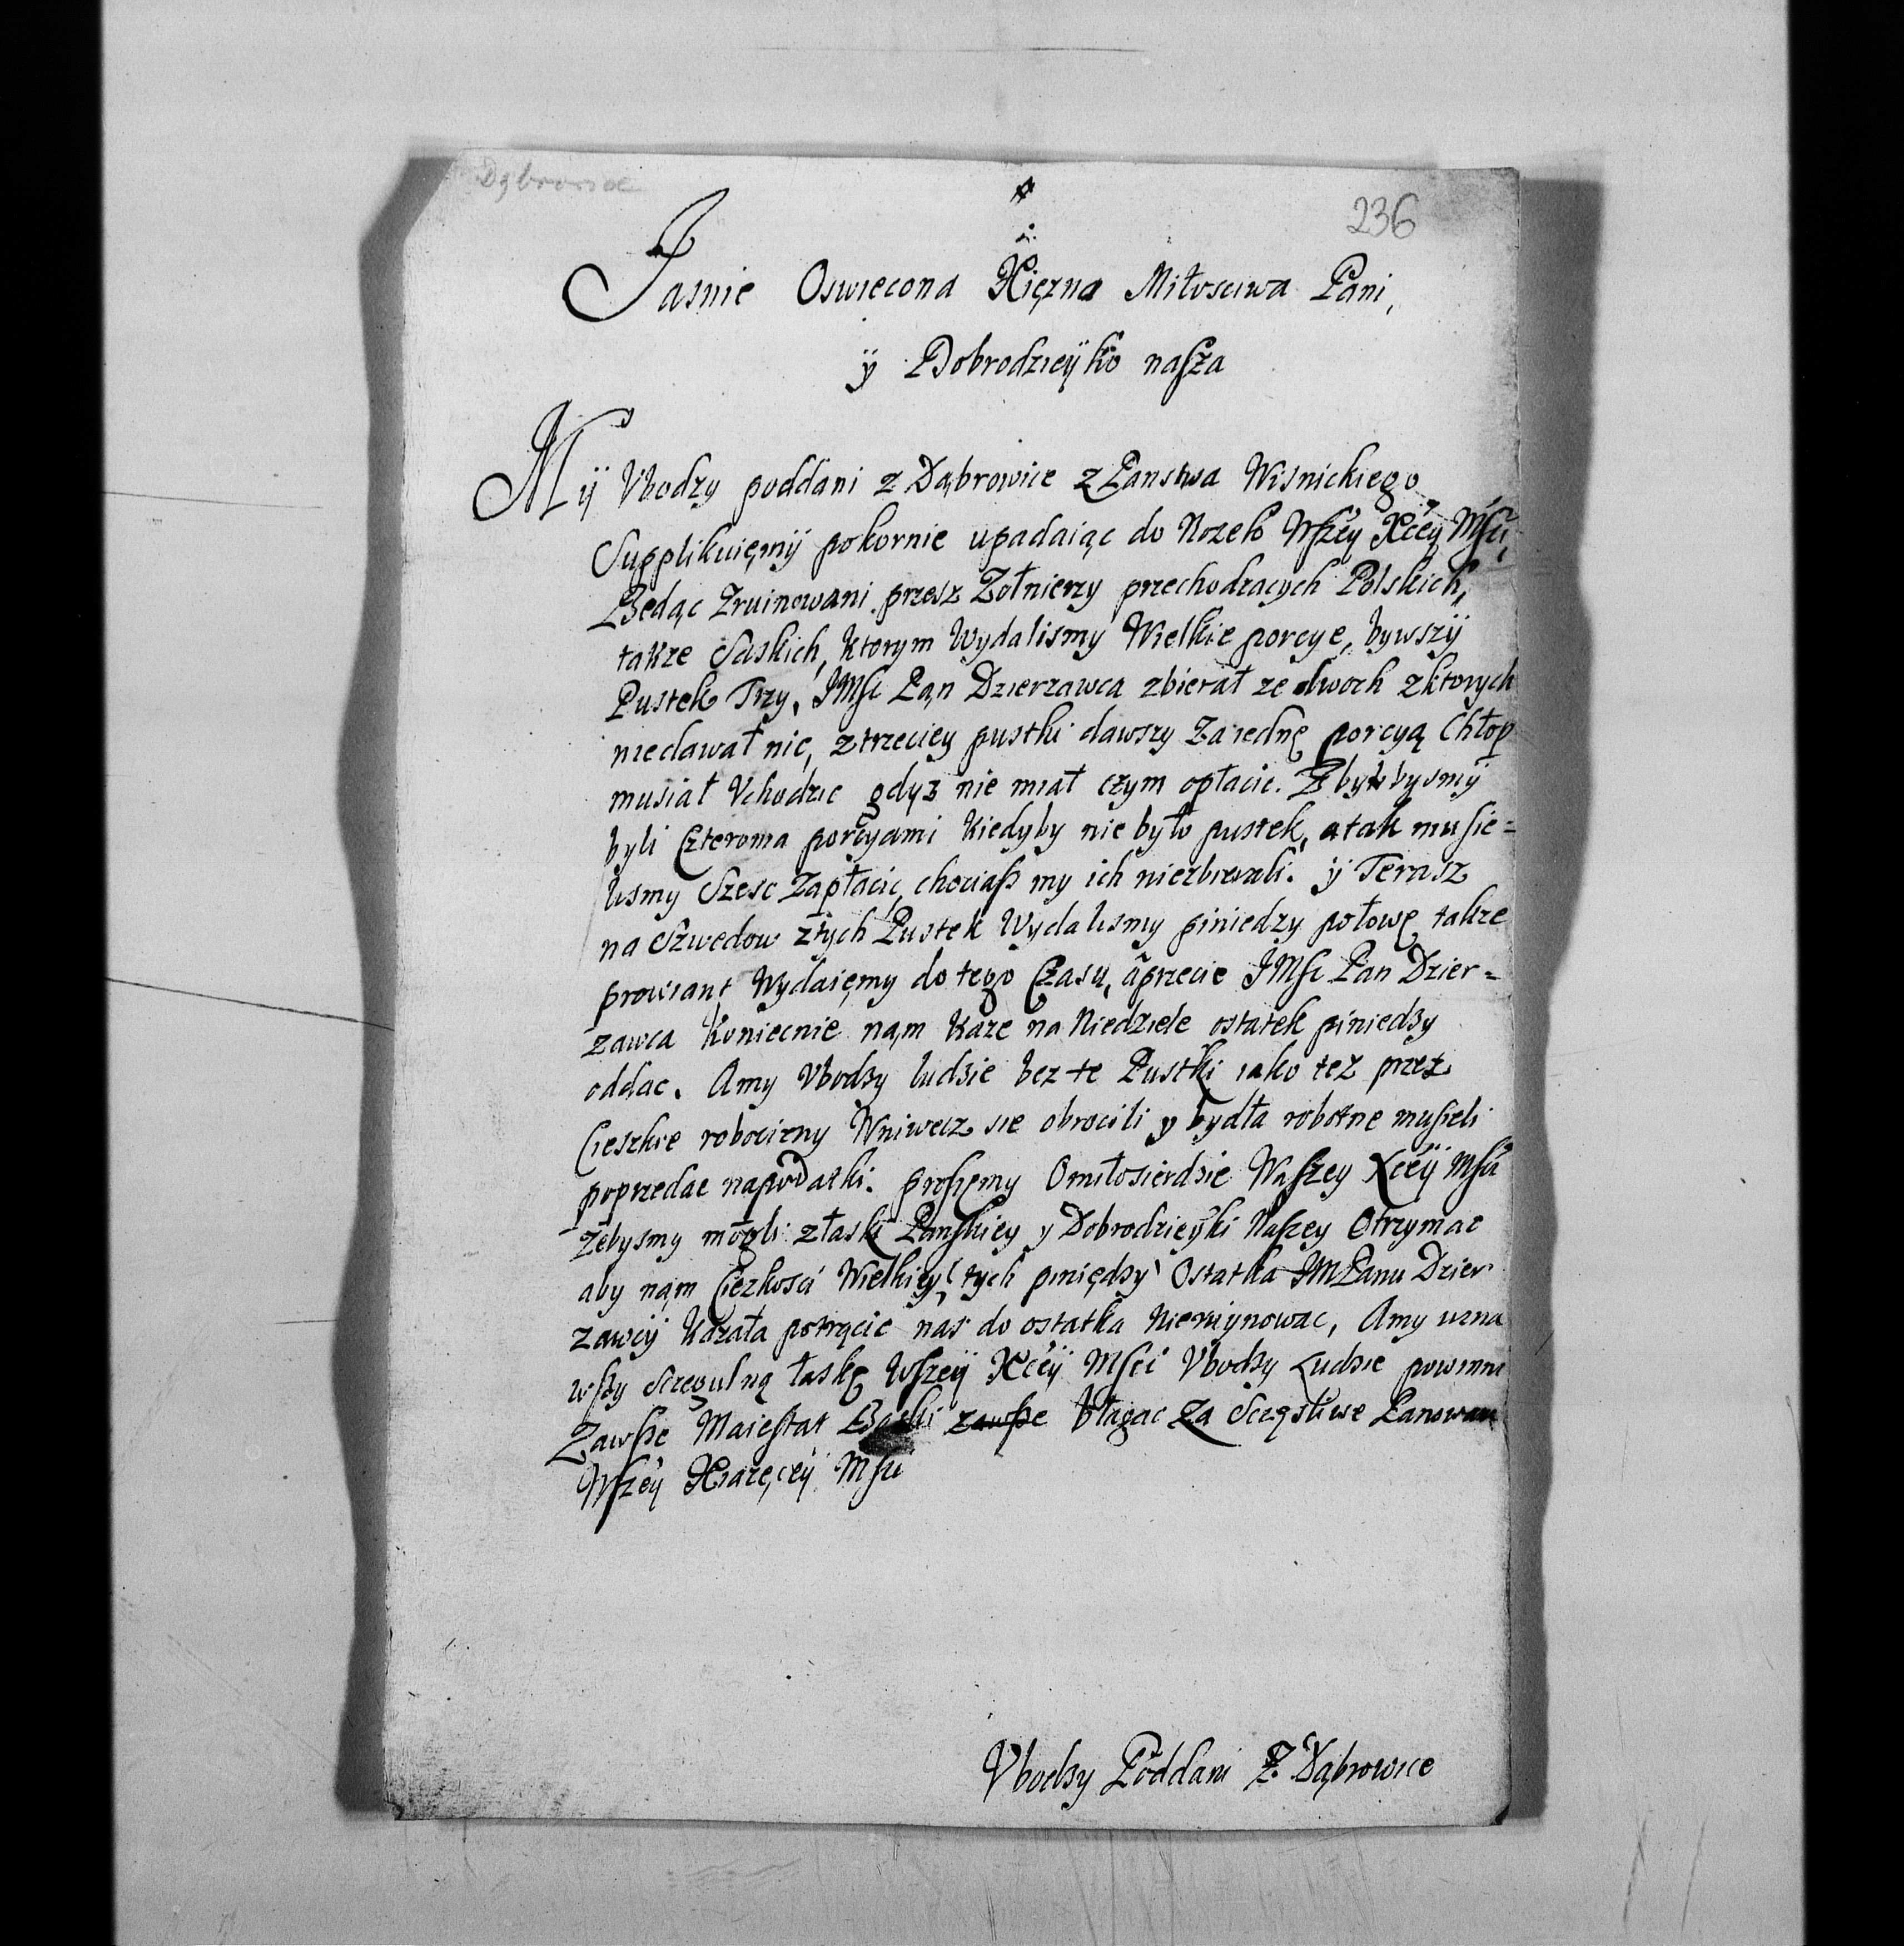 Dąbrowice
236
Jasnie Oswiecona Xięzna Miłosciwa Pani,
ÿ Dobrodzieÿko nasza
Mÿ Vbodzy poddani z Dąbrowice z Panstwa Wisnickiego
Supplikuięmÿ pokornie upadaiąc do Nozek Wszeÿ Xcéÿ Mści,
Będąc Zruinowani przesz Zołnierzy przechodzących Polskich,
takze Saskich, ktorym Wydalismy Wielkie porcye, bywszÿ
Pustek Trzy, JMśc Pąn Dzierzawca zbierał ze dwoch z ktorych
niedawał nic, z trzeciey pustki dawszy Zaiednę porcyą Chłop
musiał Vchodzic gdyz nie miał czym opłacic. Zbylibysmÿ
byli Czteroma porcyami kiedyby nie było pustek, a tak musie=
lismy Szesc Zapłacic, chociasz my ich niezbierali. ÿ Terasz
na Szwedow z tych Pustek Wydalismy piniedzy połowę takze
prowiant Wydaięmy do tego Czasu, aprzecie JMśc Pan Dzier=
zawca koniecnie nąm kaze na Niedziele ostatek piniedzy
oddac. Amy Vbodzy ludzie bez te Pustki iako tez przez
Cieszkie robocizny Wniwecz sie obrocili y bydła robotne musieli
poprzedac napodatki. prosięmy Omiłosierdzie Waszey Xcéÿ Mści
Zebysmy mogli złaski Panskiey y Dobrodzieyki Naszey Otrzymac
aby nąm Ciezkosci Wielkiey, tych piniędzy Ostatka JMPanu Dzier
zawcÿ kazała potrącic nas do ostatka Nieruÿnowac, Amy uzna
wszy Sczegulną łaskę Wszeÿ Xcéÿ Mści Vbodzy Ludzie powinni
Zawsze Maiestat Boski zawsze błagac Za Sczęsliwe Panowan
Wszeÿ Xiązęcéÿ Mści
Vbodzy Poddani Z Dąbrowice